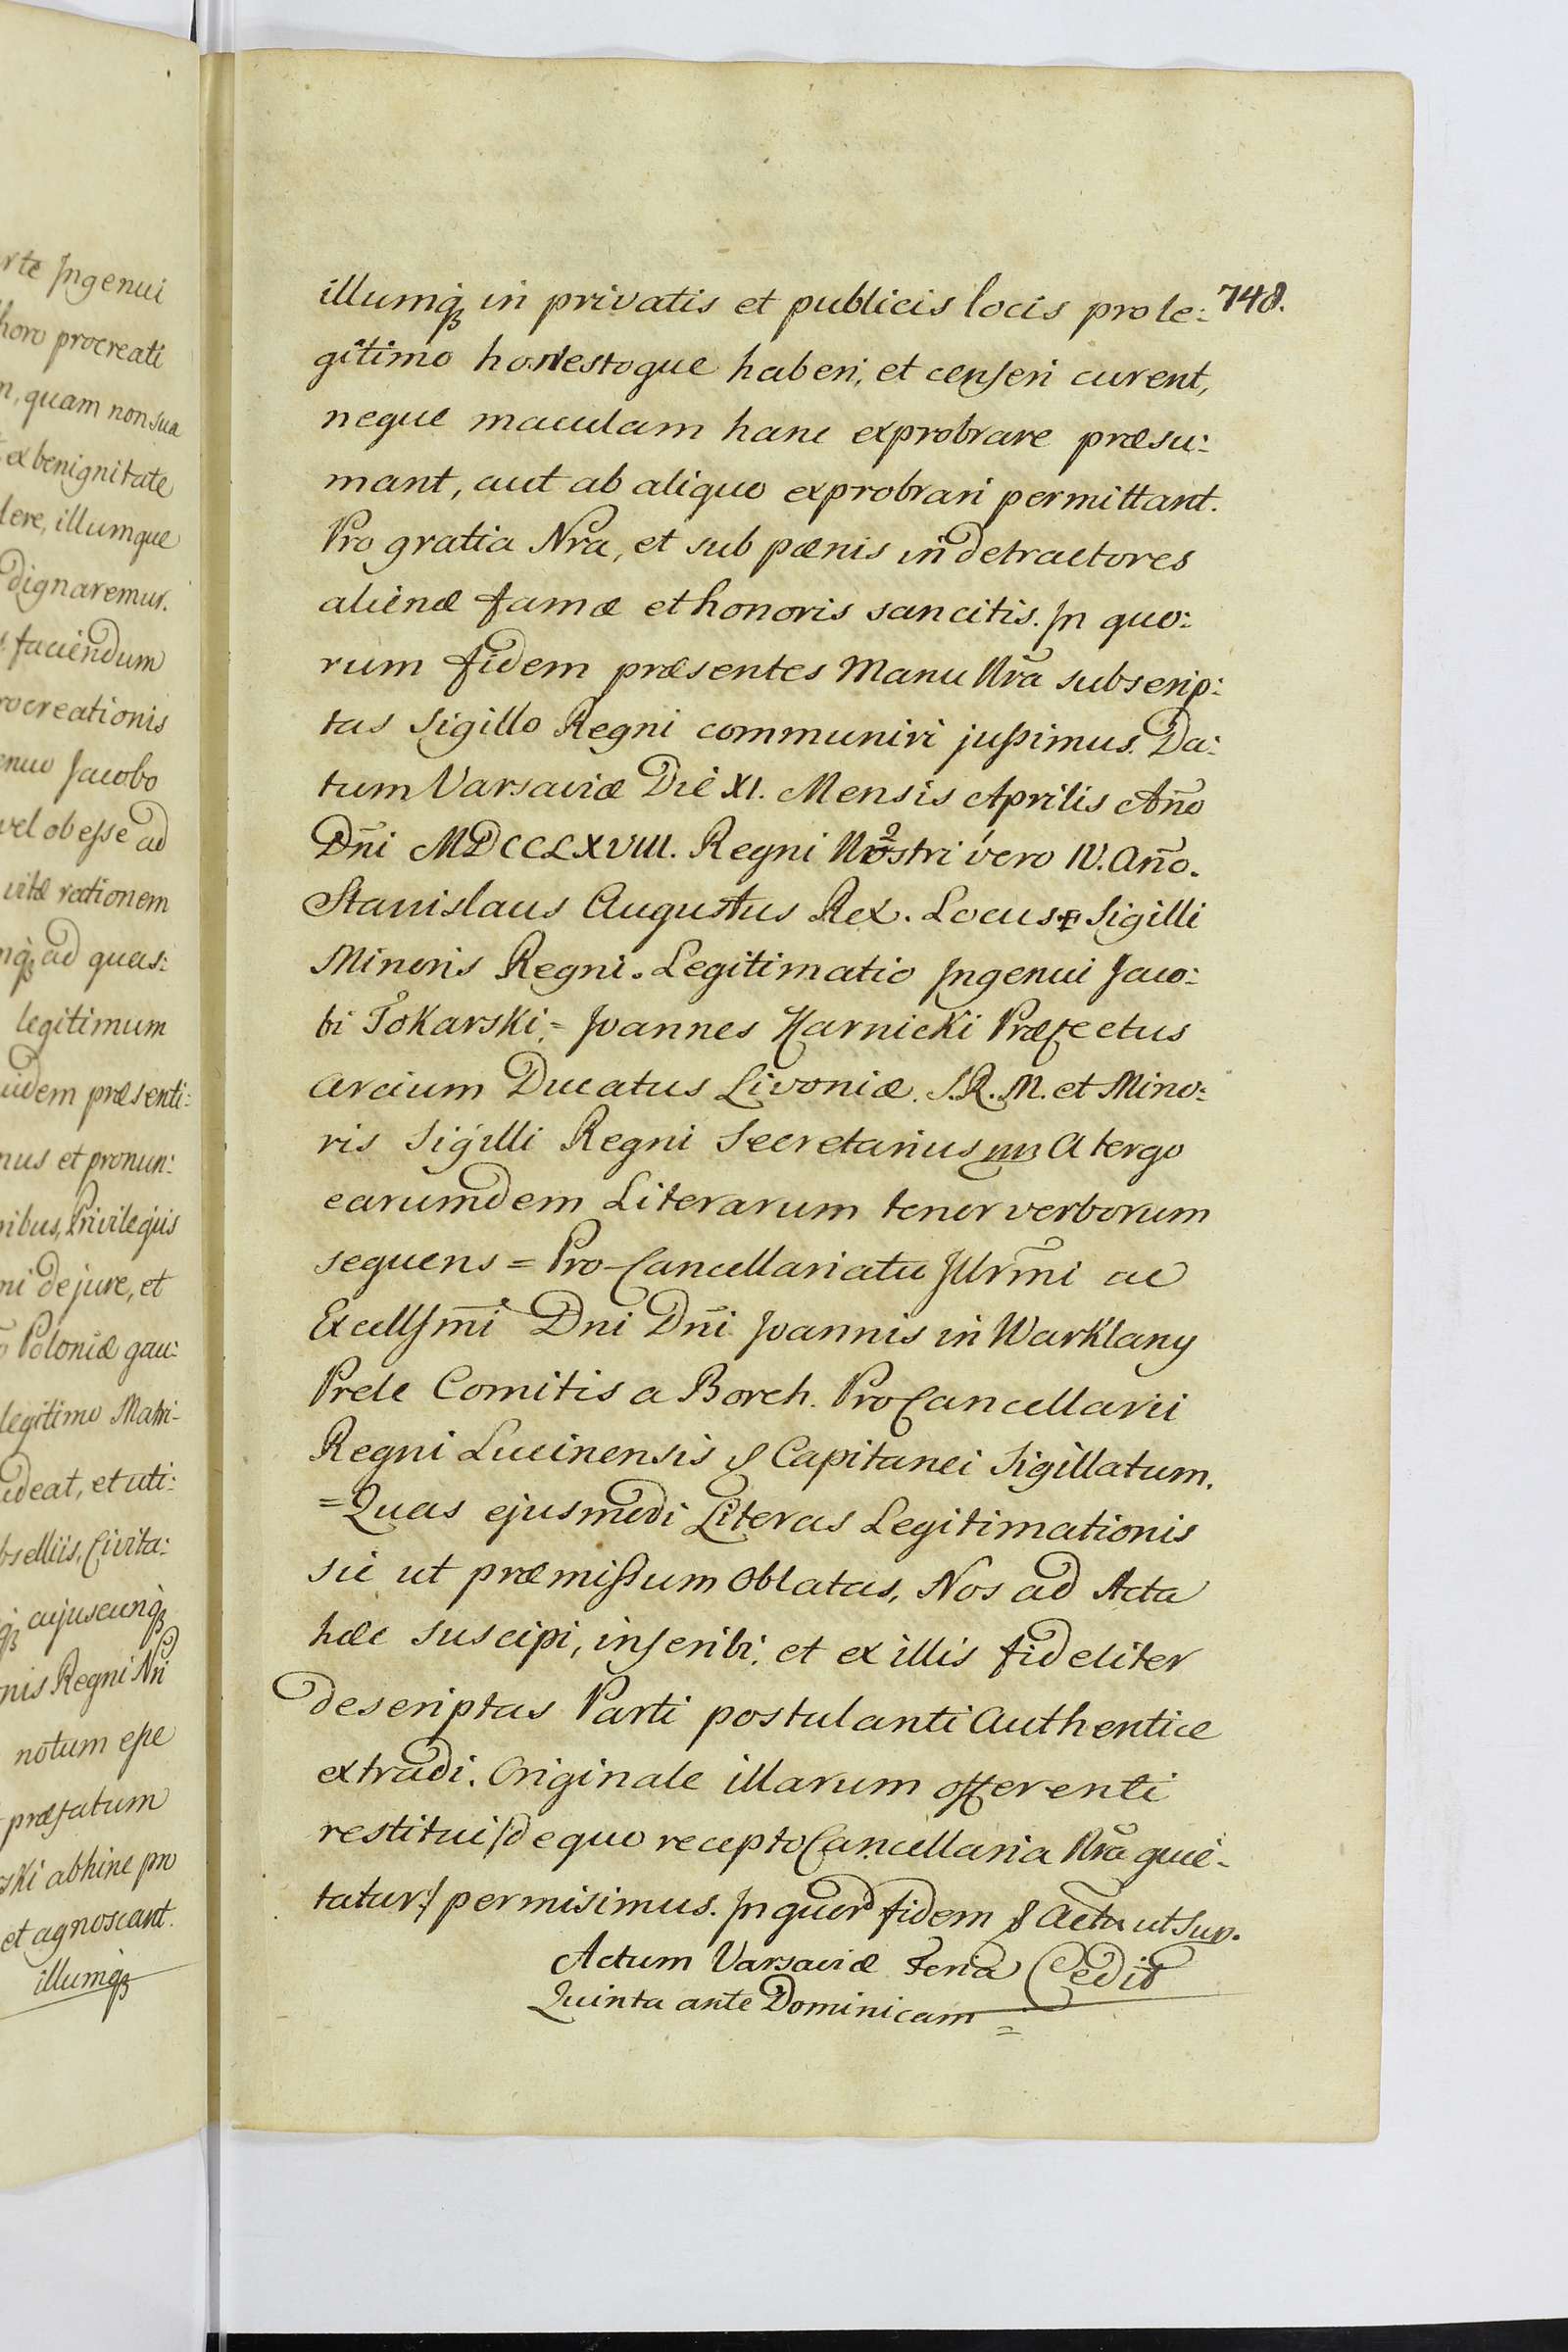 rte Ingenui
horo procreati
n, quam non sua
ex benignitate
dere, illumque
dignaremur.
faciendum
rocreationis
enuo Jacobo
vel obesse ad
vitæ rationem
mq̃ ad quas:
legitimum
uidem præsenti:
mus et pronun:
nibus, Privilegiis
ni de jure, et
Poloniæ gau:
legitimo Matri-
udeat, et uti:
bselliis, Civita:
q̃ cujuscunq̃
nis Regni Nri
notum esse
præfatum
ski abhinc pro
et agnoscant.
illumq̃
748.
illumq̃ in privatis et publicis locis pro le:
gitimo honestoque haberi, et censeri curent,
neque maculam hanc exprobrare præsu:
mant, aut ab aliquo exprobrari permittant.
Pro gratia Nrã, et sub pænis in detractores
alienæ famæ et honoris sancitis. In quo:
rum fidem præsentes Manu Nrã subscrip:
tas Sigillo Regni communiri jussimus. Da:
tum Varsaviæ Die XI. Mensis Aprilis Añо
Dñi MDCCLXVIII. Regni Nostri vero IV. Año.
Stanislaus Augustus Rex. Locus Sigilli
Minoris Regni. Legitimatio Ingenui Jaco:
bi Tokarski = Joannes Karnicki Præfectus
arcium Ducatus Livoniæ. S.R.M. et Mino:
ris Sigilli Regni Secretarius mp A tergo
earumdem Literarum tenor verborum
sequens = Pro-Cancellariatu Jllrm̃i ac
Excellsm̃i Dñi Dñi Joannis in Warklany
Prele Comitis a Borch. ProCancellarii
Regni Lucinensis & Capitanei Sigillatum.
= Quas ejusmodi Literas Legitimationis
sic ut præmissum Oblatas, Nos ad Acta
hæc suscipi, inscribi, et ex illis fideliter
descriptas Parti postulanti Authentice
extradi. Originale illarum offerenti
restitui /de quo recepto Cancellaria Nrã quie-
tatur:/ permisimus. In quor fidem & Actũ ut Sup.
Actum Varsaviæ Feria Cedit
Quinta ante Dominicam =